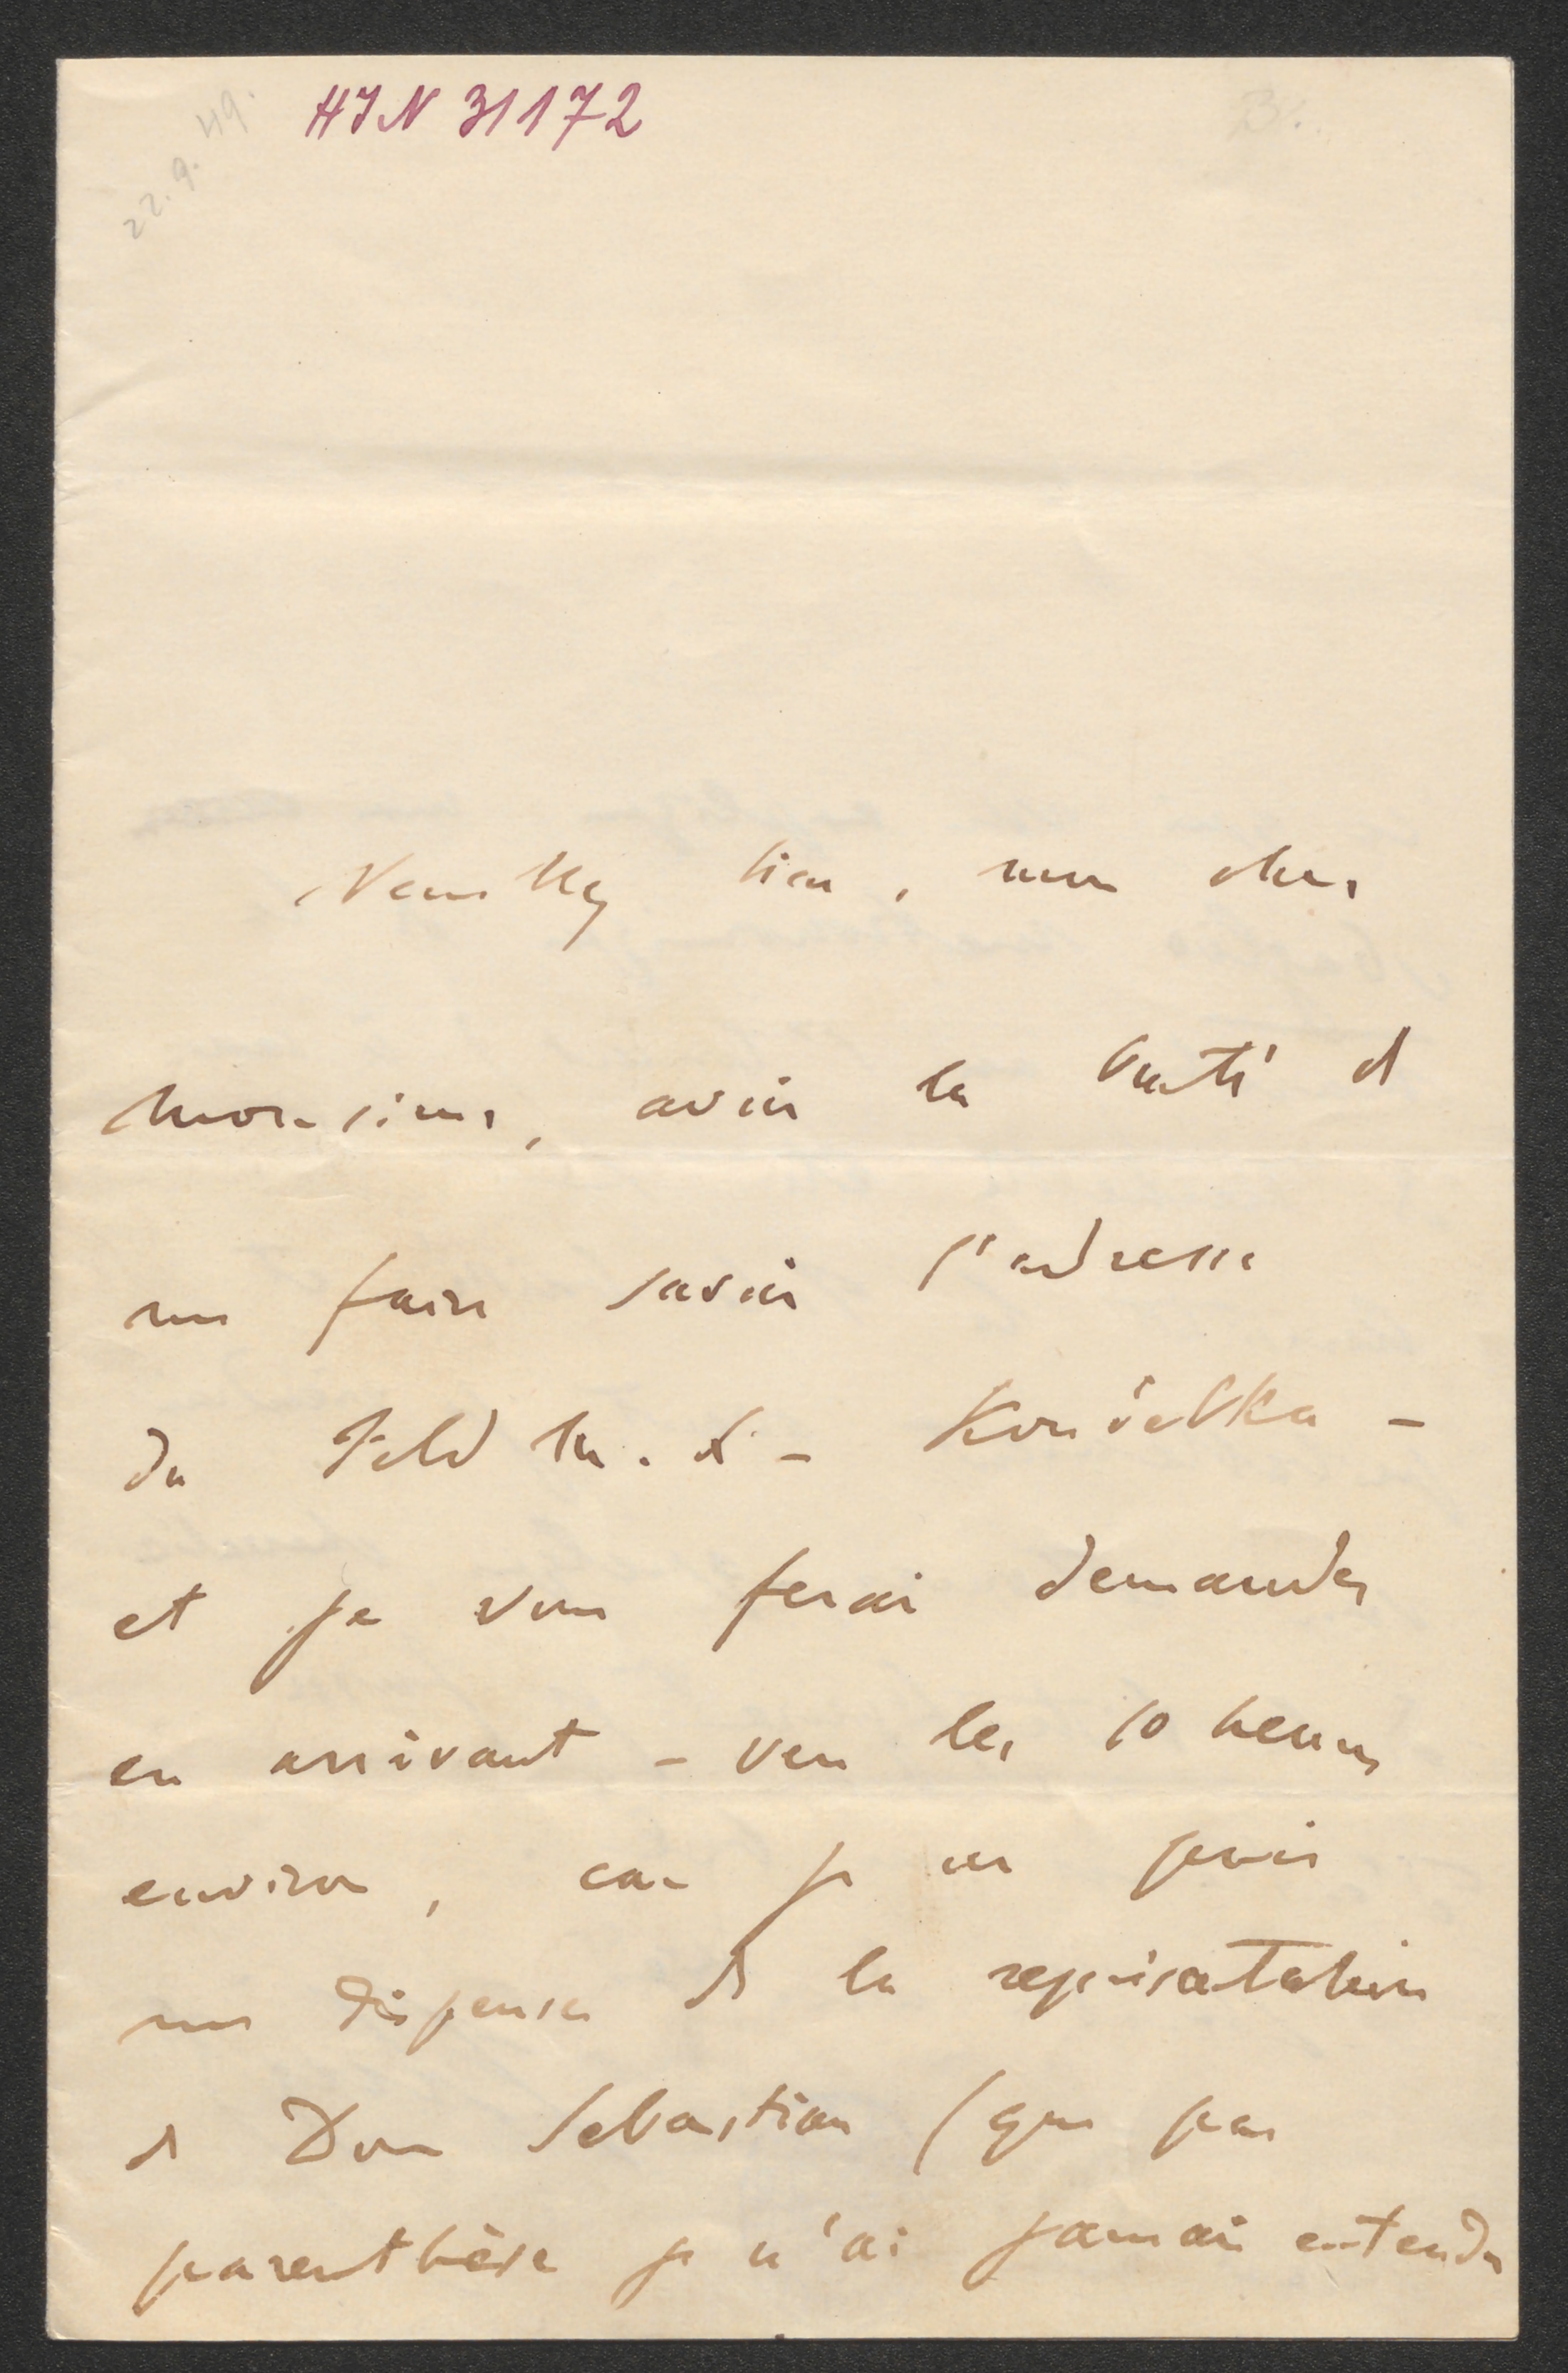 22.9.49.
HIN 31172
B.
Veuillez bien, mon cher
Monsieur, avoir la bonté de
me faire savoir l'adresse
du Feld M. L. Koudelka –
et je vous ferai demander
en arrivant – vers les 10 heures
environ, car je ne puis
me dispenser de la représentation
de Don Sebastian (que par
parenthèse je n'ai jamais entendu